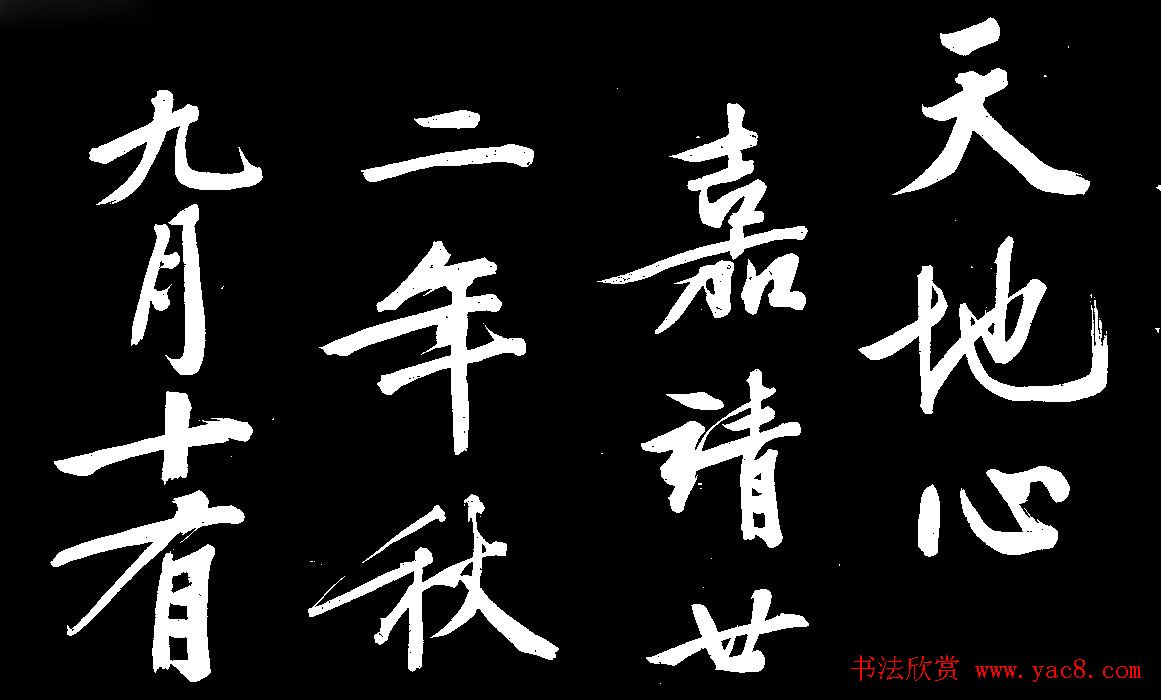 天地心
嘉靖廿
二年秋
九月十有
书法欣赏 www.yac8.com